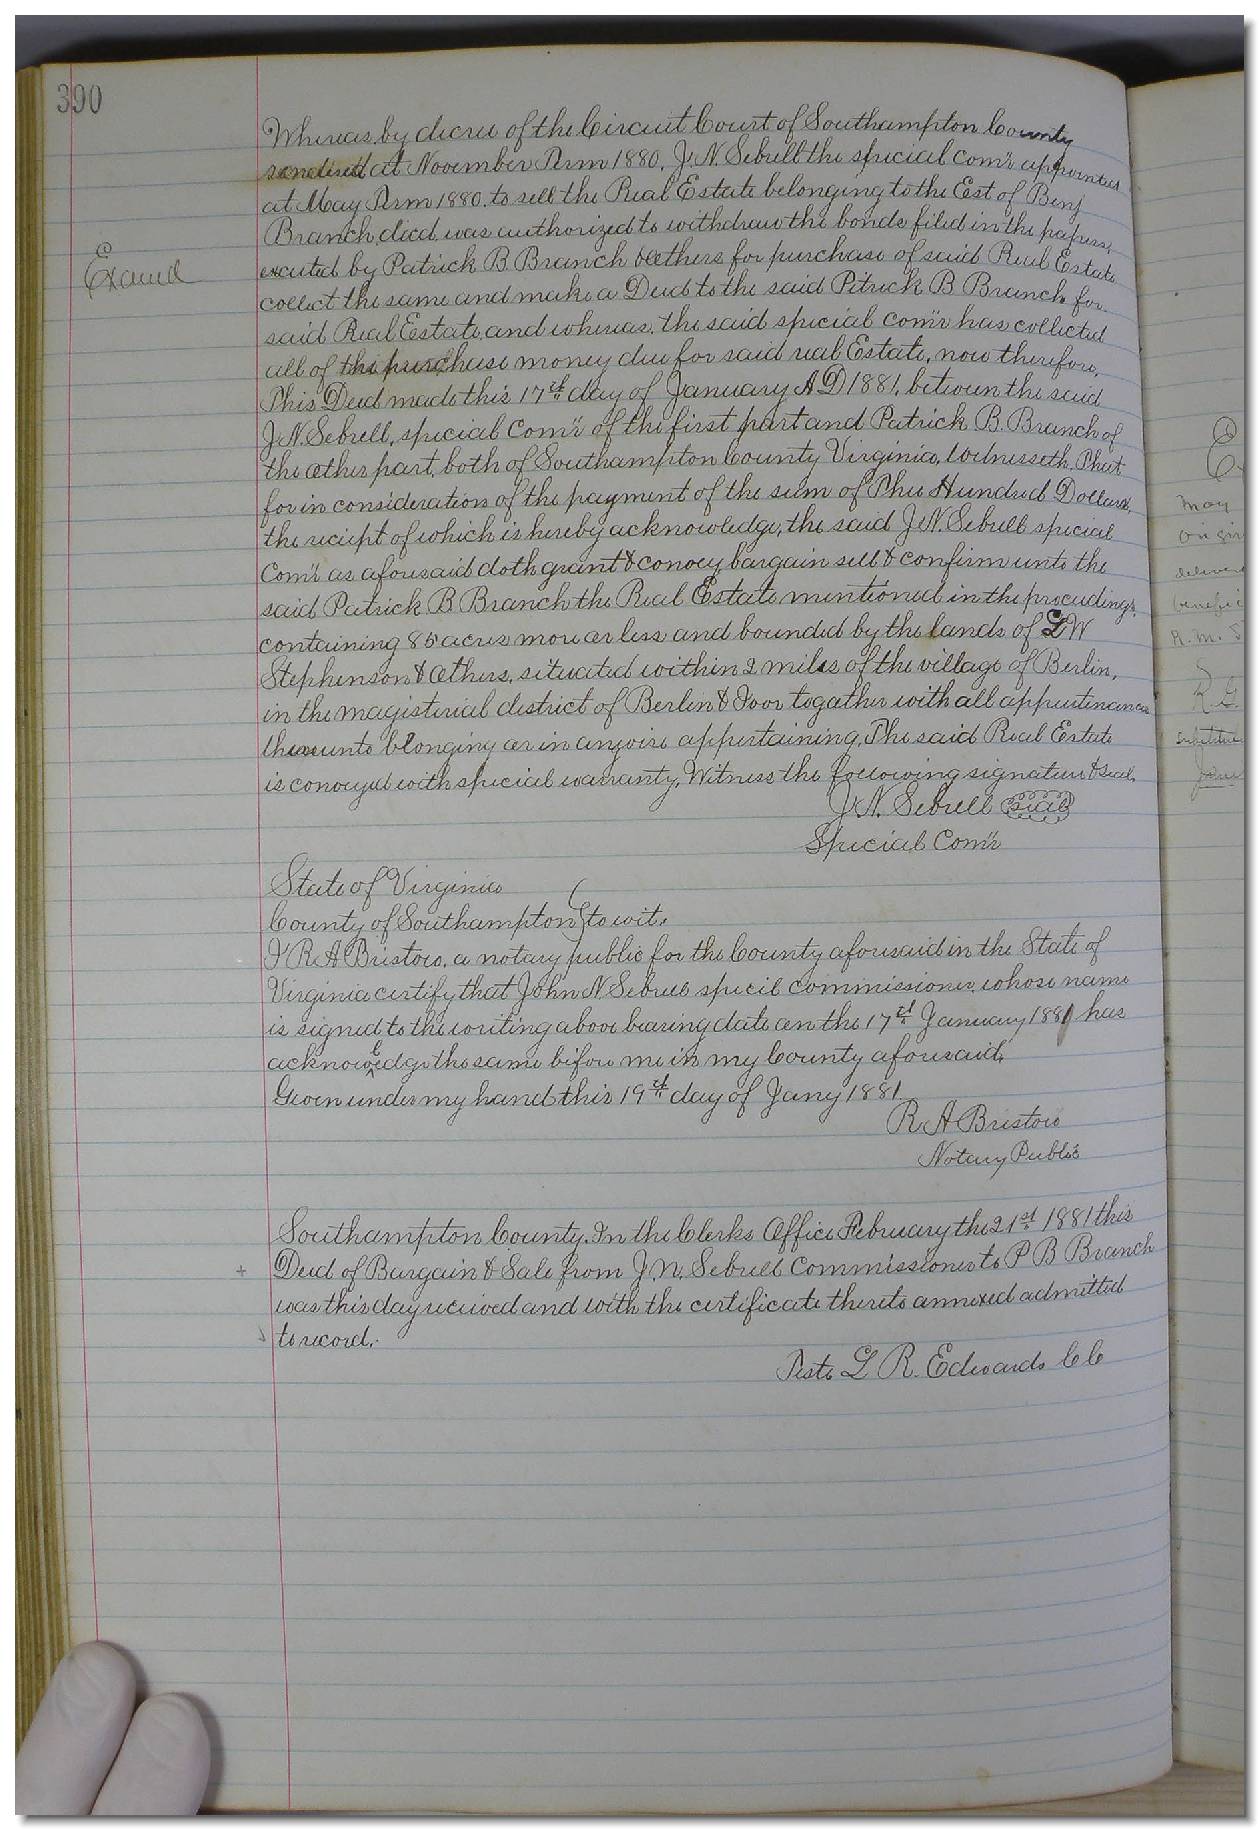 390
Whereas by decree of the Circuit Court of Southampton County
rendered at November Term 1880, J. N. Sebrell the special Com'r appointed
at May Term 1880, to sell the Real Estate belonging to the Est of Benj
Branch, decd, was authorized to withdraw the bonds filed in the papers,
Examd
excuted by Patrick B Branch & others for purchase of said Real Estate
collect the same and make a Deed to the said Patrick B Branch for
said Real Estate, and whereas, the said special com'r has collected
all of the purchase money due for said real Estate, now therefore,
This Deed made this 17th day of January A D 1881, between the said
J. N. Sebrell, special Com'r of the first part and Patrick B. Branch of
the other part, both of Southampton County Virginia, Witnesseth, That
for in consideration of the payment of the sum of Three Hundred Dollars,
the reciept of which is hereby acknowledge, the said J. N. Sebrell special
Com'r as aforesaid doth grant & convey bargain sell & confirm unto the
said Patrick B Branch the Real Estate mentioned in the proceedings,
containing 85 acres more or less and bounded by the lands of W
Stephenson & others, situated within 2 miles of the village of Berlin,
in the magisterial district of Berlin & Ivor together with all appurtenances
thereunto belonging or in anywise appertaining, The said Real Estate
is conveyed with special warranty, Witness the following signature & seal.
J. N. Sebrell seal
Special Com'r
State of Virginia
County of Southampton } to wit,
I R A Bristow, a notary public for the County aforesaid in the State of
Virginia certify that John N Sebrell specil commissioner, whose name
is signed to the writing above bearing date on the 17th January 1881 has
acknowledge the same before me in my County aforesaid,
Given under my hand this 19th day of Jany 1881
R A Bristow
Notary Public
Southampton County, In the Clerks Office February the 21st 1881 this
Deed of Bargain & Sale from J. N. Sebrell Commissioner to P B Branch
was this day received and with the certificate thereto annexed admitted
to record.
Teste L R. Edwards C C
may
R. G.